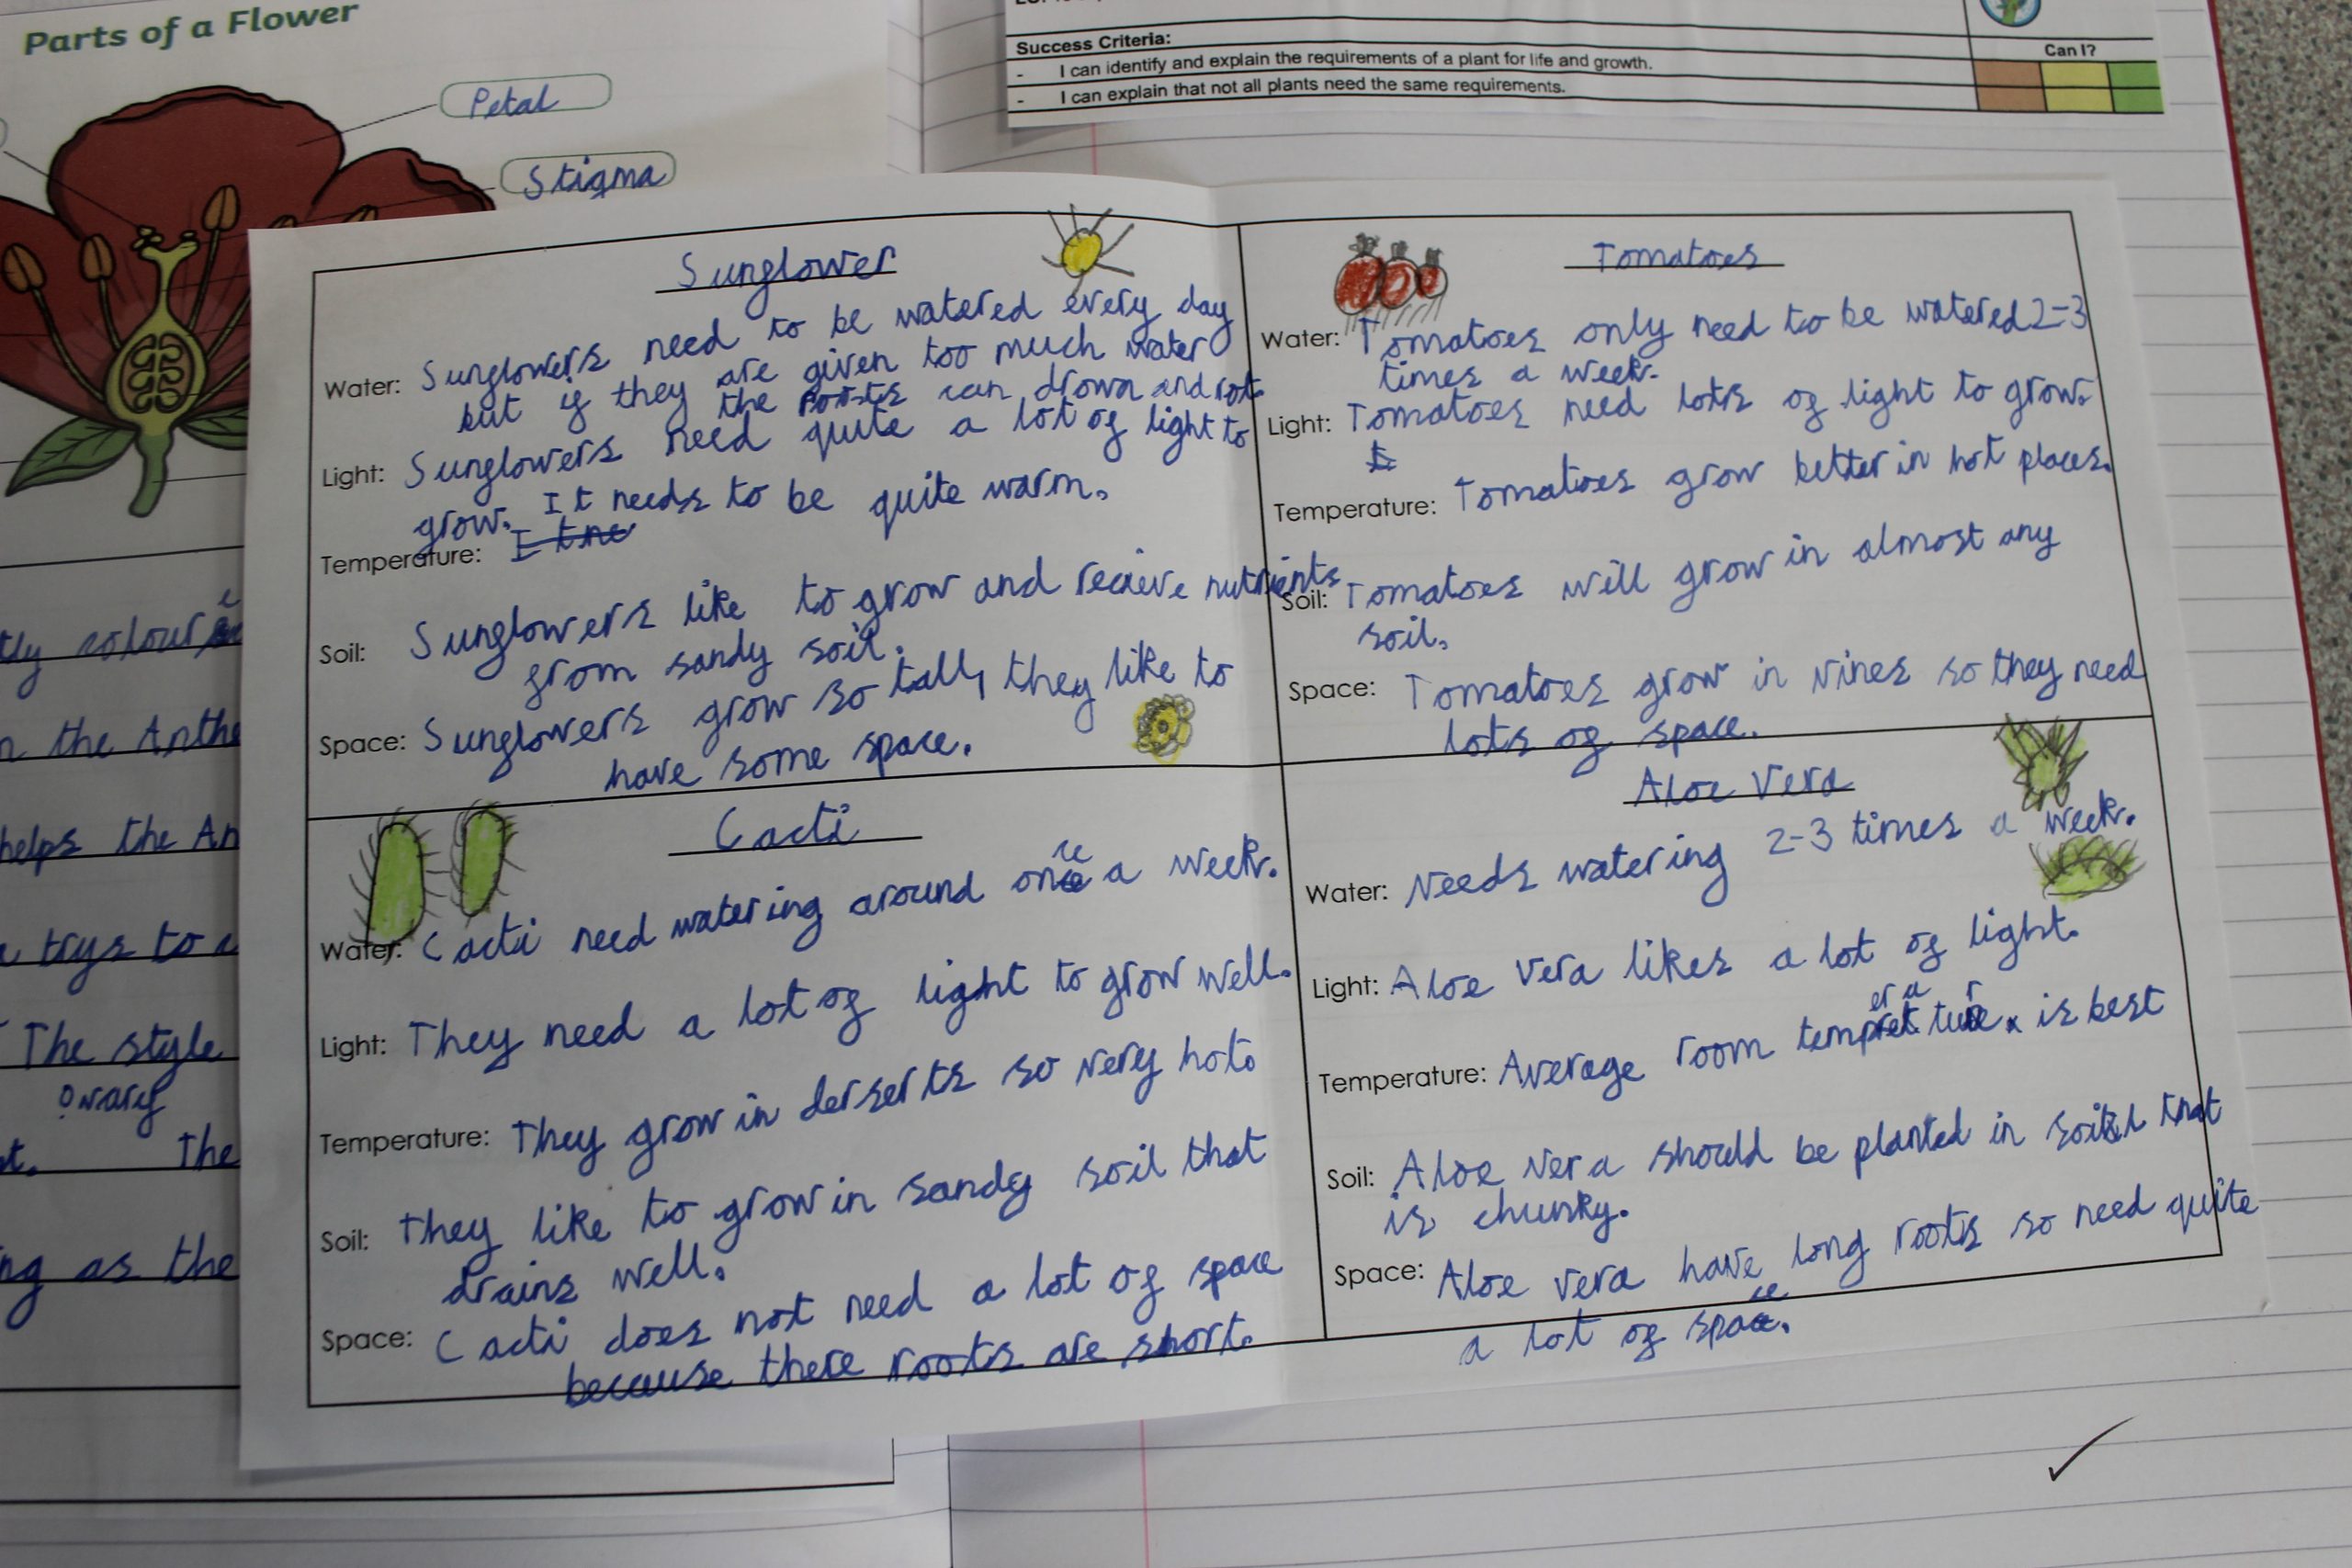 Parts of a Flower
Petal
Stigma
Success Criteria:
Can I?
- I can identify and explain the requirements of a plant for life and growth.
- I can explain that not all plants need the same requirements.
Sunflower
Water: Sunflowers need to be watered every day
but if they are given too much water
the roots can drown and rot.
Light: Sunflowers need quite a lot of light to
grow. It needs to be quite warm.
Temperature:
Soil: Sunflowers like to grow and recieve nutrients
from sandy soil.
Space: Sunflowers grow so tall, they like to
have some space.
Tomatoes
Water: Tomatoes only need to be watered 2-3
times a week.
Light: Tomatoes need lots of light to grow.
Temperature: Tomatoes grow better in hot places.
Soil: Tomatoes will grow in almost any
soil.
Space: Tomatoes grow in vines so they need
lots of space.
Cacti
Water: Cacti need watering around once a week.
Light: They need a lot of light to grow well.
Temperature: They grow in derserts so very hot.
Soil: They like to grow in sandy soil that
drains well.
Space: Cacti does not need a lot of space
because there roots are short.
Aloe Vera
Water: Needs watering 2-3 times a week.
Light: Aloe vera likes a lot of light.
Temperature: Average room temperature is best
Soil: Aloe vera should be planted in soil that
is chunky.
Space: Aloe vera have long roots so need quite
a lot of space.
colour
the Anthe
helps the An
trys to
The style
ovary
The
as the